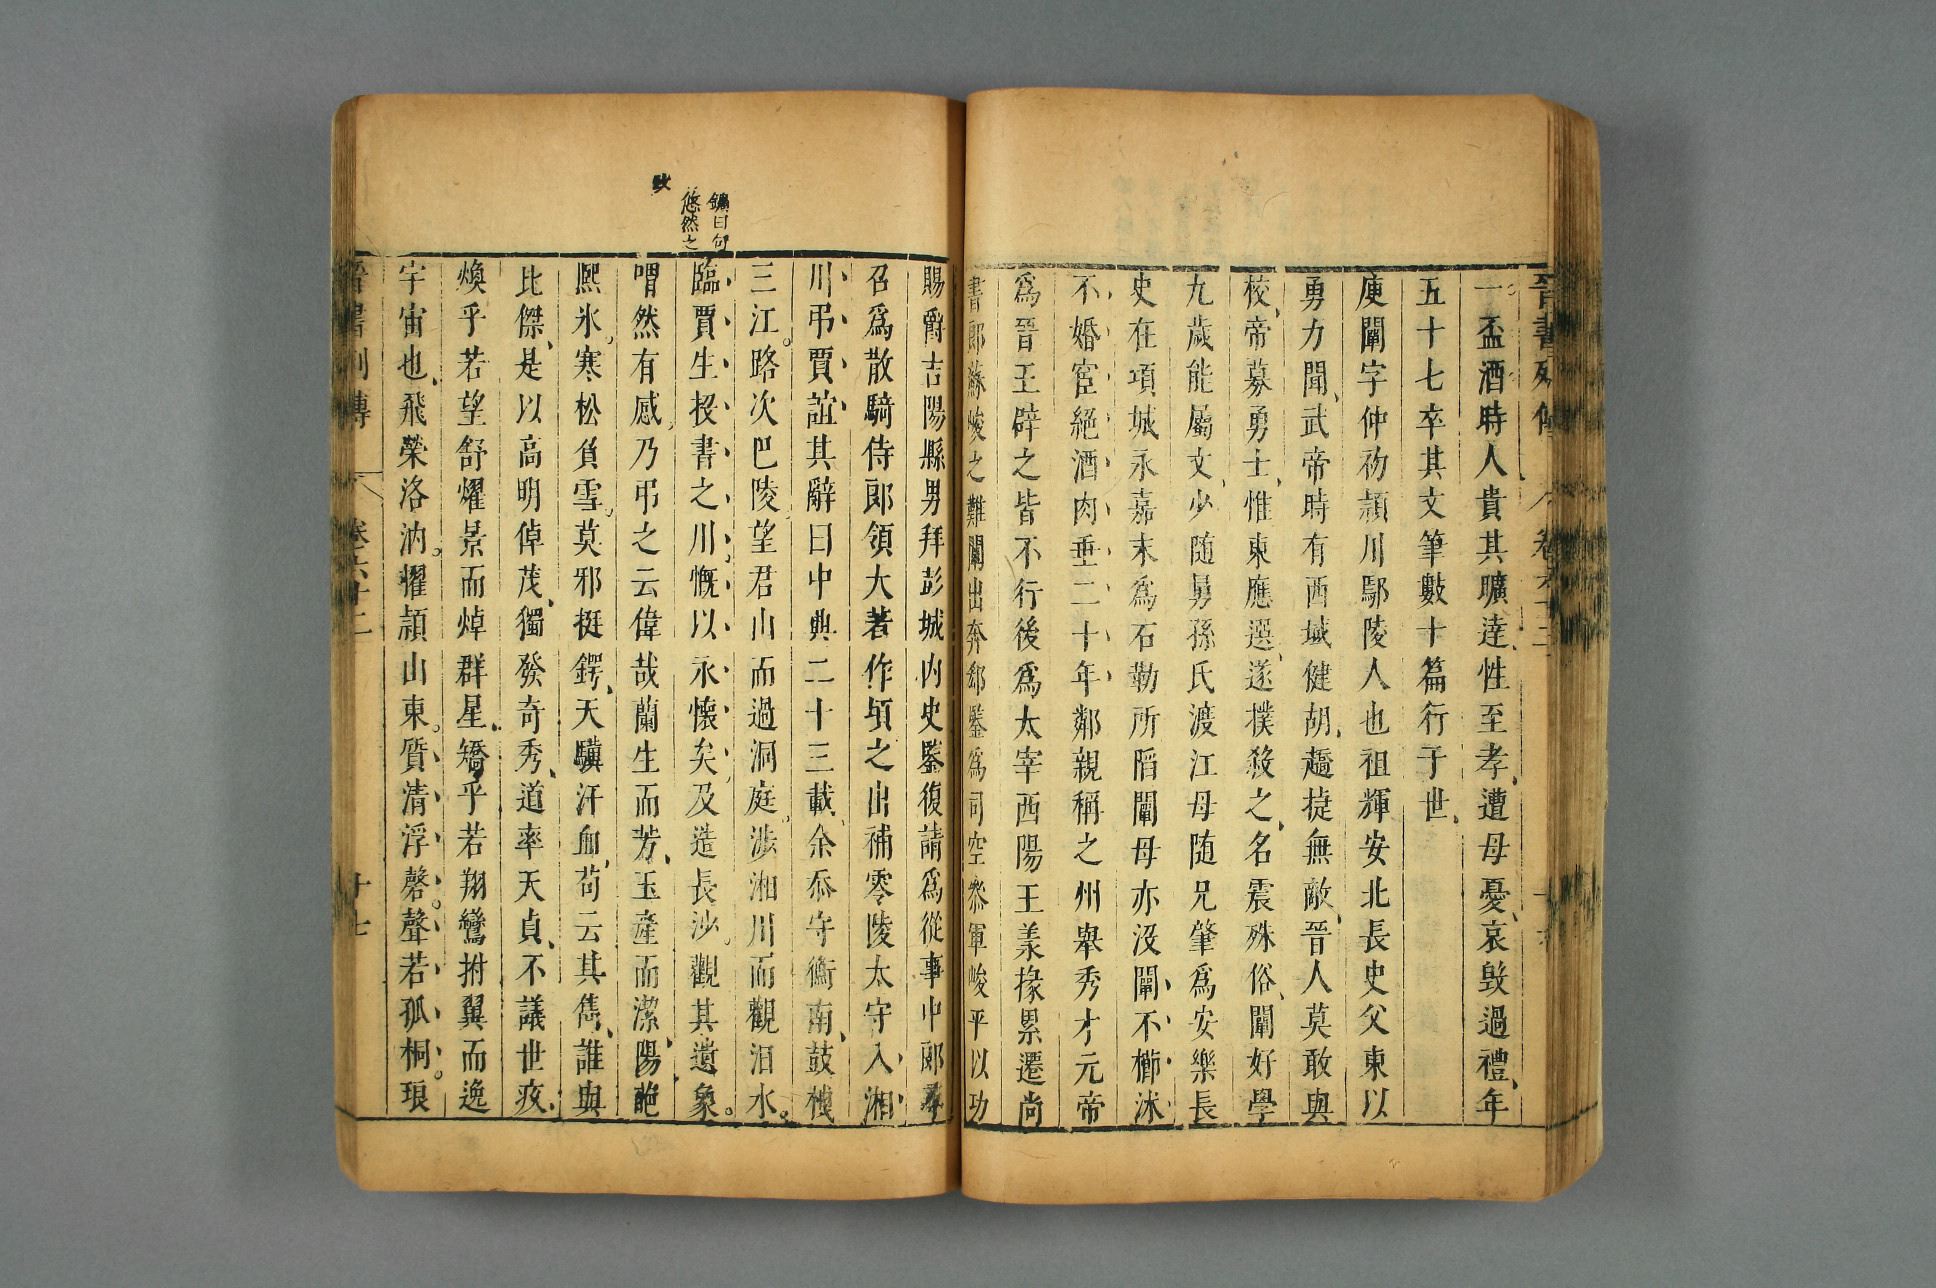 一盃酒時人貴其曠達性至孝遭母憂哀毀過禮年
五十七卒其文筆數十篇行于世
庾闡字仲初潁川鄢陵人也祖輝安北長史父東以
勇力聞武帝時有西域健胡趫捷無敵晉人莫敢與
校帝募勇士惟東應選遂撲殺之名震殊俗闡好學
九歲能屬文少随舅孫氏渡江母随兄肇為安樂長
史在項城永嘉末為石勒所陷闡母亦沒闡不櫛沐
不婚宦絕酒肉垂二十年鄰親稱之州舉秀才元帝
為晉王辟之皆不行後為太宰西陽王羕掾累遷尚
書郎蘇峻之難闡出奔郄鑒為司空叅軍峻平以功
賜爵吉陽縣男拜彭城內史鑒復請為從事中郎尋
召為散騎侍郎領大著作頃之出補零陵太守入湘
川弔賈誼其辭曰中興二十三載余忝守衡南鼓枻
三江。路次巴陵望君山而過洞庭涉湘川而觀汨水。
臨賈生投書之川。慨以永懷矣及造長沙。觀其遺象。
喟然有感乃弔之云偉哉蘭生而芳、玉產而潔、陽葩
熈氷。寒松負雪。莫邪挺鍔、天驥汗血、苟云其雋、誰與
比傑、是以高明倬茂、獨發奇秀、道率天貞、不議世疚、
煥乎若望舒燿景而焯群星、矯乎若翔鸞拊翼而逸
宇宙也、飛榮洛汭。擢頴山東。質清浮磬。聲若孤桐。琅
晉書列傳 卷六十二 十七
鑣曰句
悠然之
致